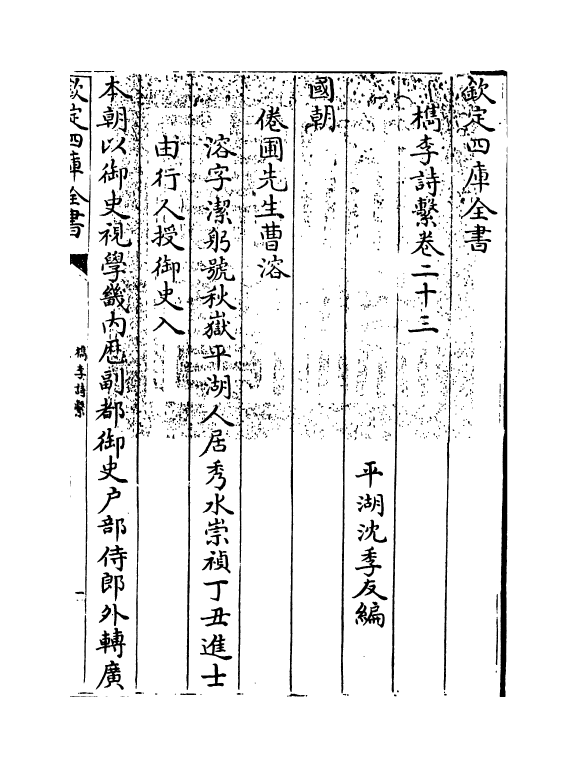 欽定四庫全書
檇李詩繫卷二十三
平湖沈季友編
國朝
倦圃先生曹溶
溶字潔躬號秋嶽平湖人居秀水崇禎丁丑進士
由行人授御史入
本朝以御史視學畿內歴副都御史户部侍郎外轉廣
欽定四庫全書
檇李詩繫
一